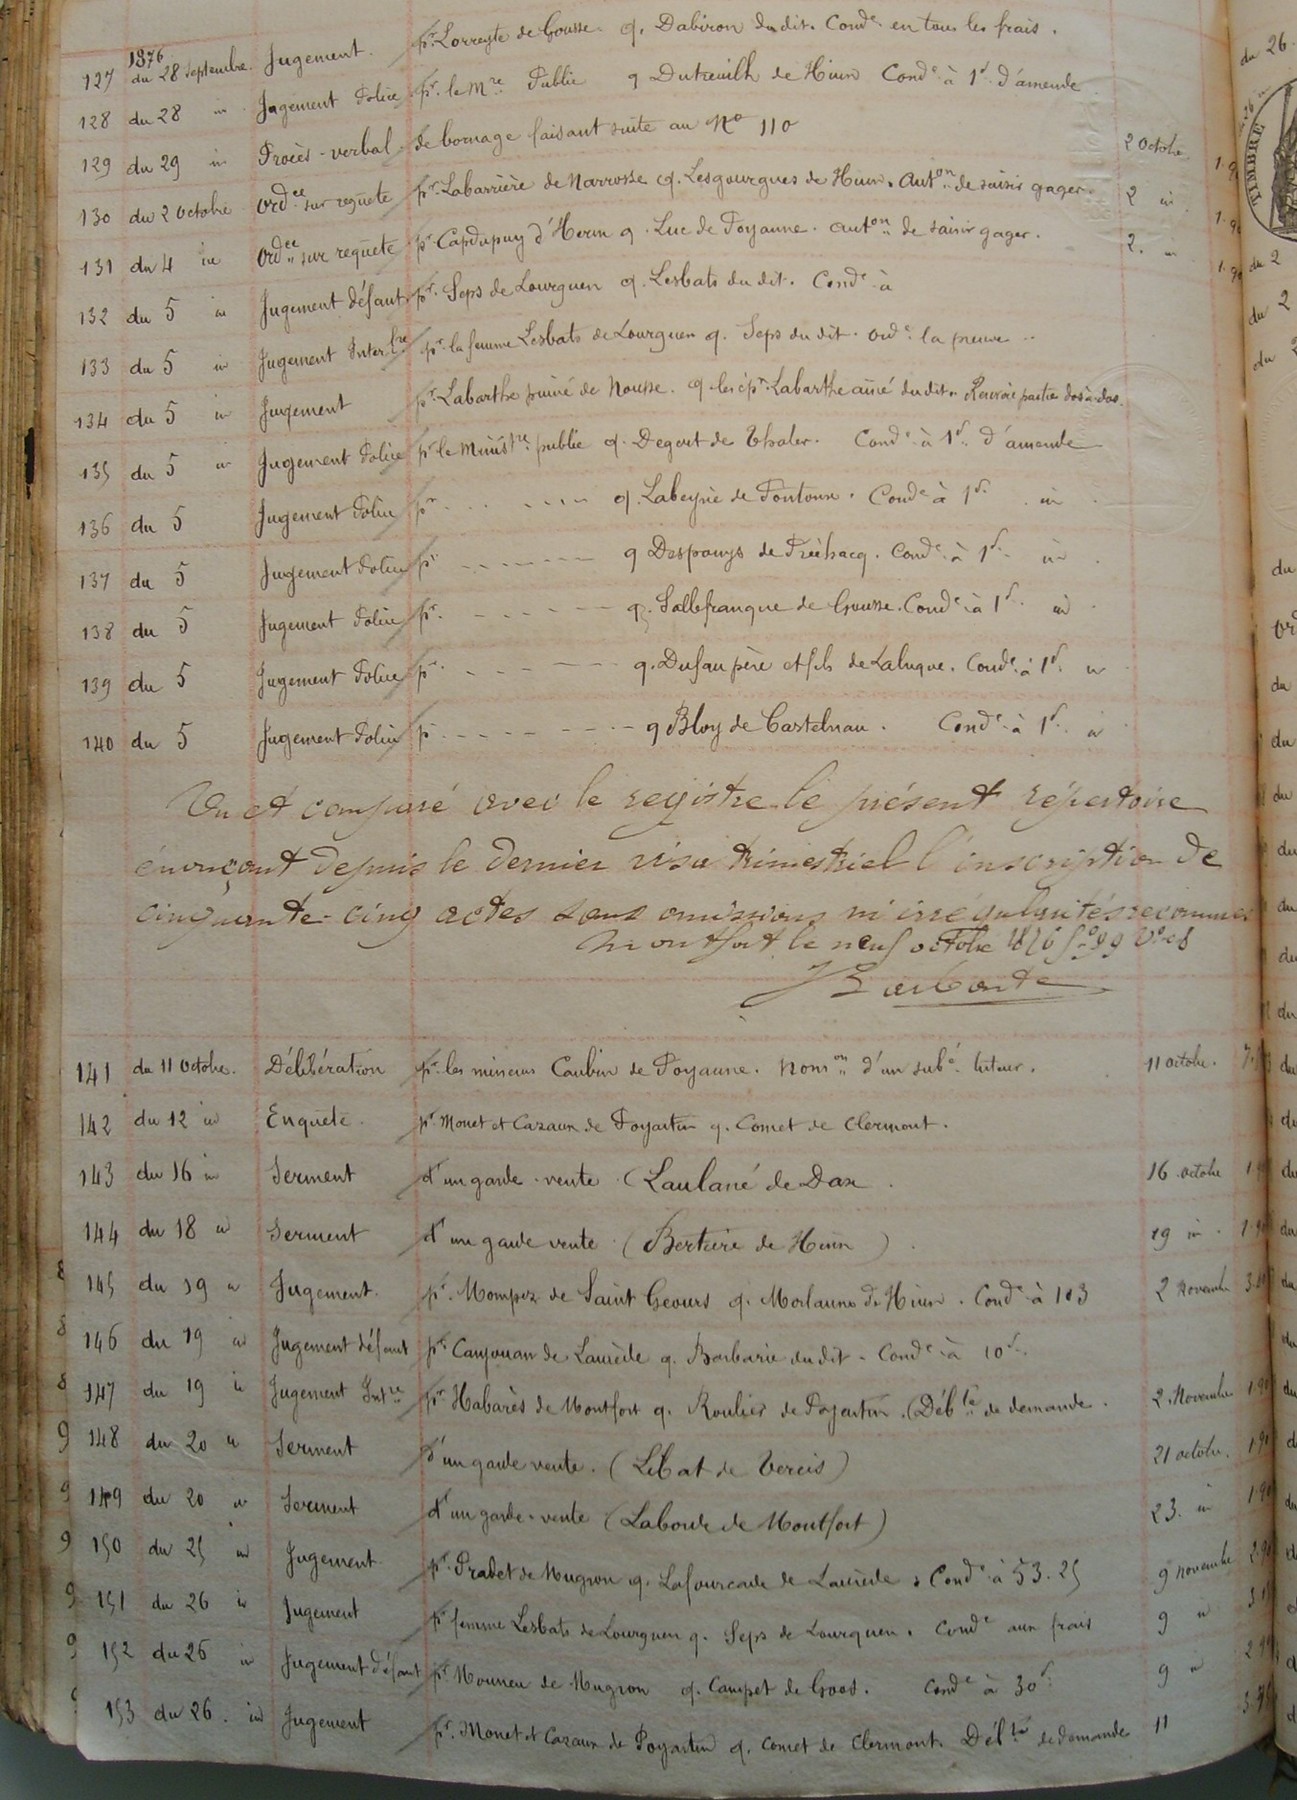 1876
127 du 28 septembre Jugement. pr. Lorreyte de Gousse q. Dabiron du dit. Condé en tous les frais.
128 du 28 in Jugement Police pr. le Mre Public q Dutreuilh de Hinx Condé à 1f d'amende
129 du 29 in Procès-verbal de bornage faisant suite au No 110
130 du 2 octobre Ordce sur requête pr. Labarrière de Narrosse q. Lesgourgues de Hinx. Auton de saisir gager. 2 Octobre 1.90
131 du 4 in Ordce sur requête pr Capdupuy d'Herm q. Luc de Poyanne. auton de saisir gager. 2 in 1.90
132 du 5 in Jugement défaut pr. Seps de Lourquen q. Lesbats du dit. Condé à 2. in 1.90
133 du 5 in Jugement Interlre pr. la femme Lesbats de Lourquen q. Seps du dit. ordé la preuve
134 du 5 in Jugement pr. Labarthe puiné de Nousse. q les épx Labarthe ainé du dit. Renvoie parties dos à dos.
135 du 5 in Jugement Police pr le Ministre public q. Degout de Thaler. Condé à 1f. d'amende
136 du 5 Jugement Police pr q. Labeyrie de Pontonx. Condé à 1f. in
137 du 5 Jugement Police pr q Despouys de Préchacq. Condé à 1f. in
138 du 5 Jugement Police pr. q. Sallefranque de Gousse. Condé à 1f. in
139 du 5 Jugement Police pr q. Dufau père et fils de Laluque. Condé à 1f. in
140 du 5 Jugement Police pr q Bloy de Castelnau. Condé à 1f. in
Vu et comparé avec le registre le présent répertoire
énonçant depuis le dernier visa trimestriel l'inscription de
cinquante-cinq actes sans omissions ni irrégularités reconnues
Montfort le neuf octobre 1876 fo 99
141 du 11 Octobre. Délibération pr. les mineurs Caubin de Poyanne. Nomon d'un subé tuteur. 11 octobre.
142 du 12 in Enquête. pr. Monet et Cazaux de Poyartin q. Comet de Clermont.
143 du 16 in Serment d'un garde-vente (Laulané de Dax 16 octobre
144 du 18 in Serment d'un garde vente (Bertière de Hinx) 19 in. 1.90
8 145 du 19 in Jugement. pr. Mompez de Saint Geours q. Morlanne de Hinx. Condé à 103 2 Novembre
8 146 du 19 in Jugement défaut pr. Canjouan de Laurède q. Barbarie du dit. Condé à 10f.
8 147 du 19 in Jugement Intre pr. Habarès de Montfort q. Roulier de Poyartin. (Débté de demande. 2 Novembre 1.90
9 148 du 20 in Serment d'un garde vente. (Lebat de Vercis) 21 octobre. 1.90
9 149 du 20 in Serment d'un garde-vente (Laborde de Montfort) 23. in 1.90
9 150 du 25 in Jugement. pr. Pradet de Mugron q. Lafourcade de Laurède. Condé à 53.25 9 novembre 2.90
9 151 du 26 in Jugement pr femme Lesbats de Lourquen q. Seps de Lourquen. Condé aux frais 9 in
9 152 du 26 in Jugement défaut pr. Mouneu de Mugron q. Campet de Goos. Condé à 30f. 9 in
153 du 26. in Jugement pr. Monet et Cazaux de Poyartin q. Comet de Clermont. Débté de demande 11
TIMBRE
du 26
du 2
du 2